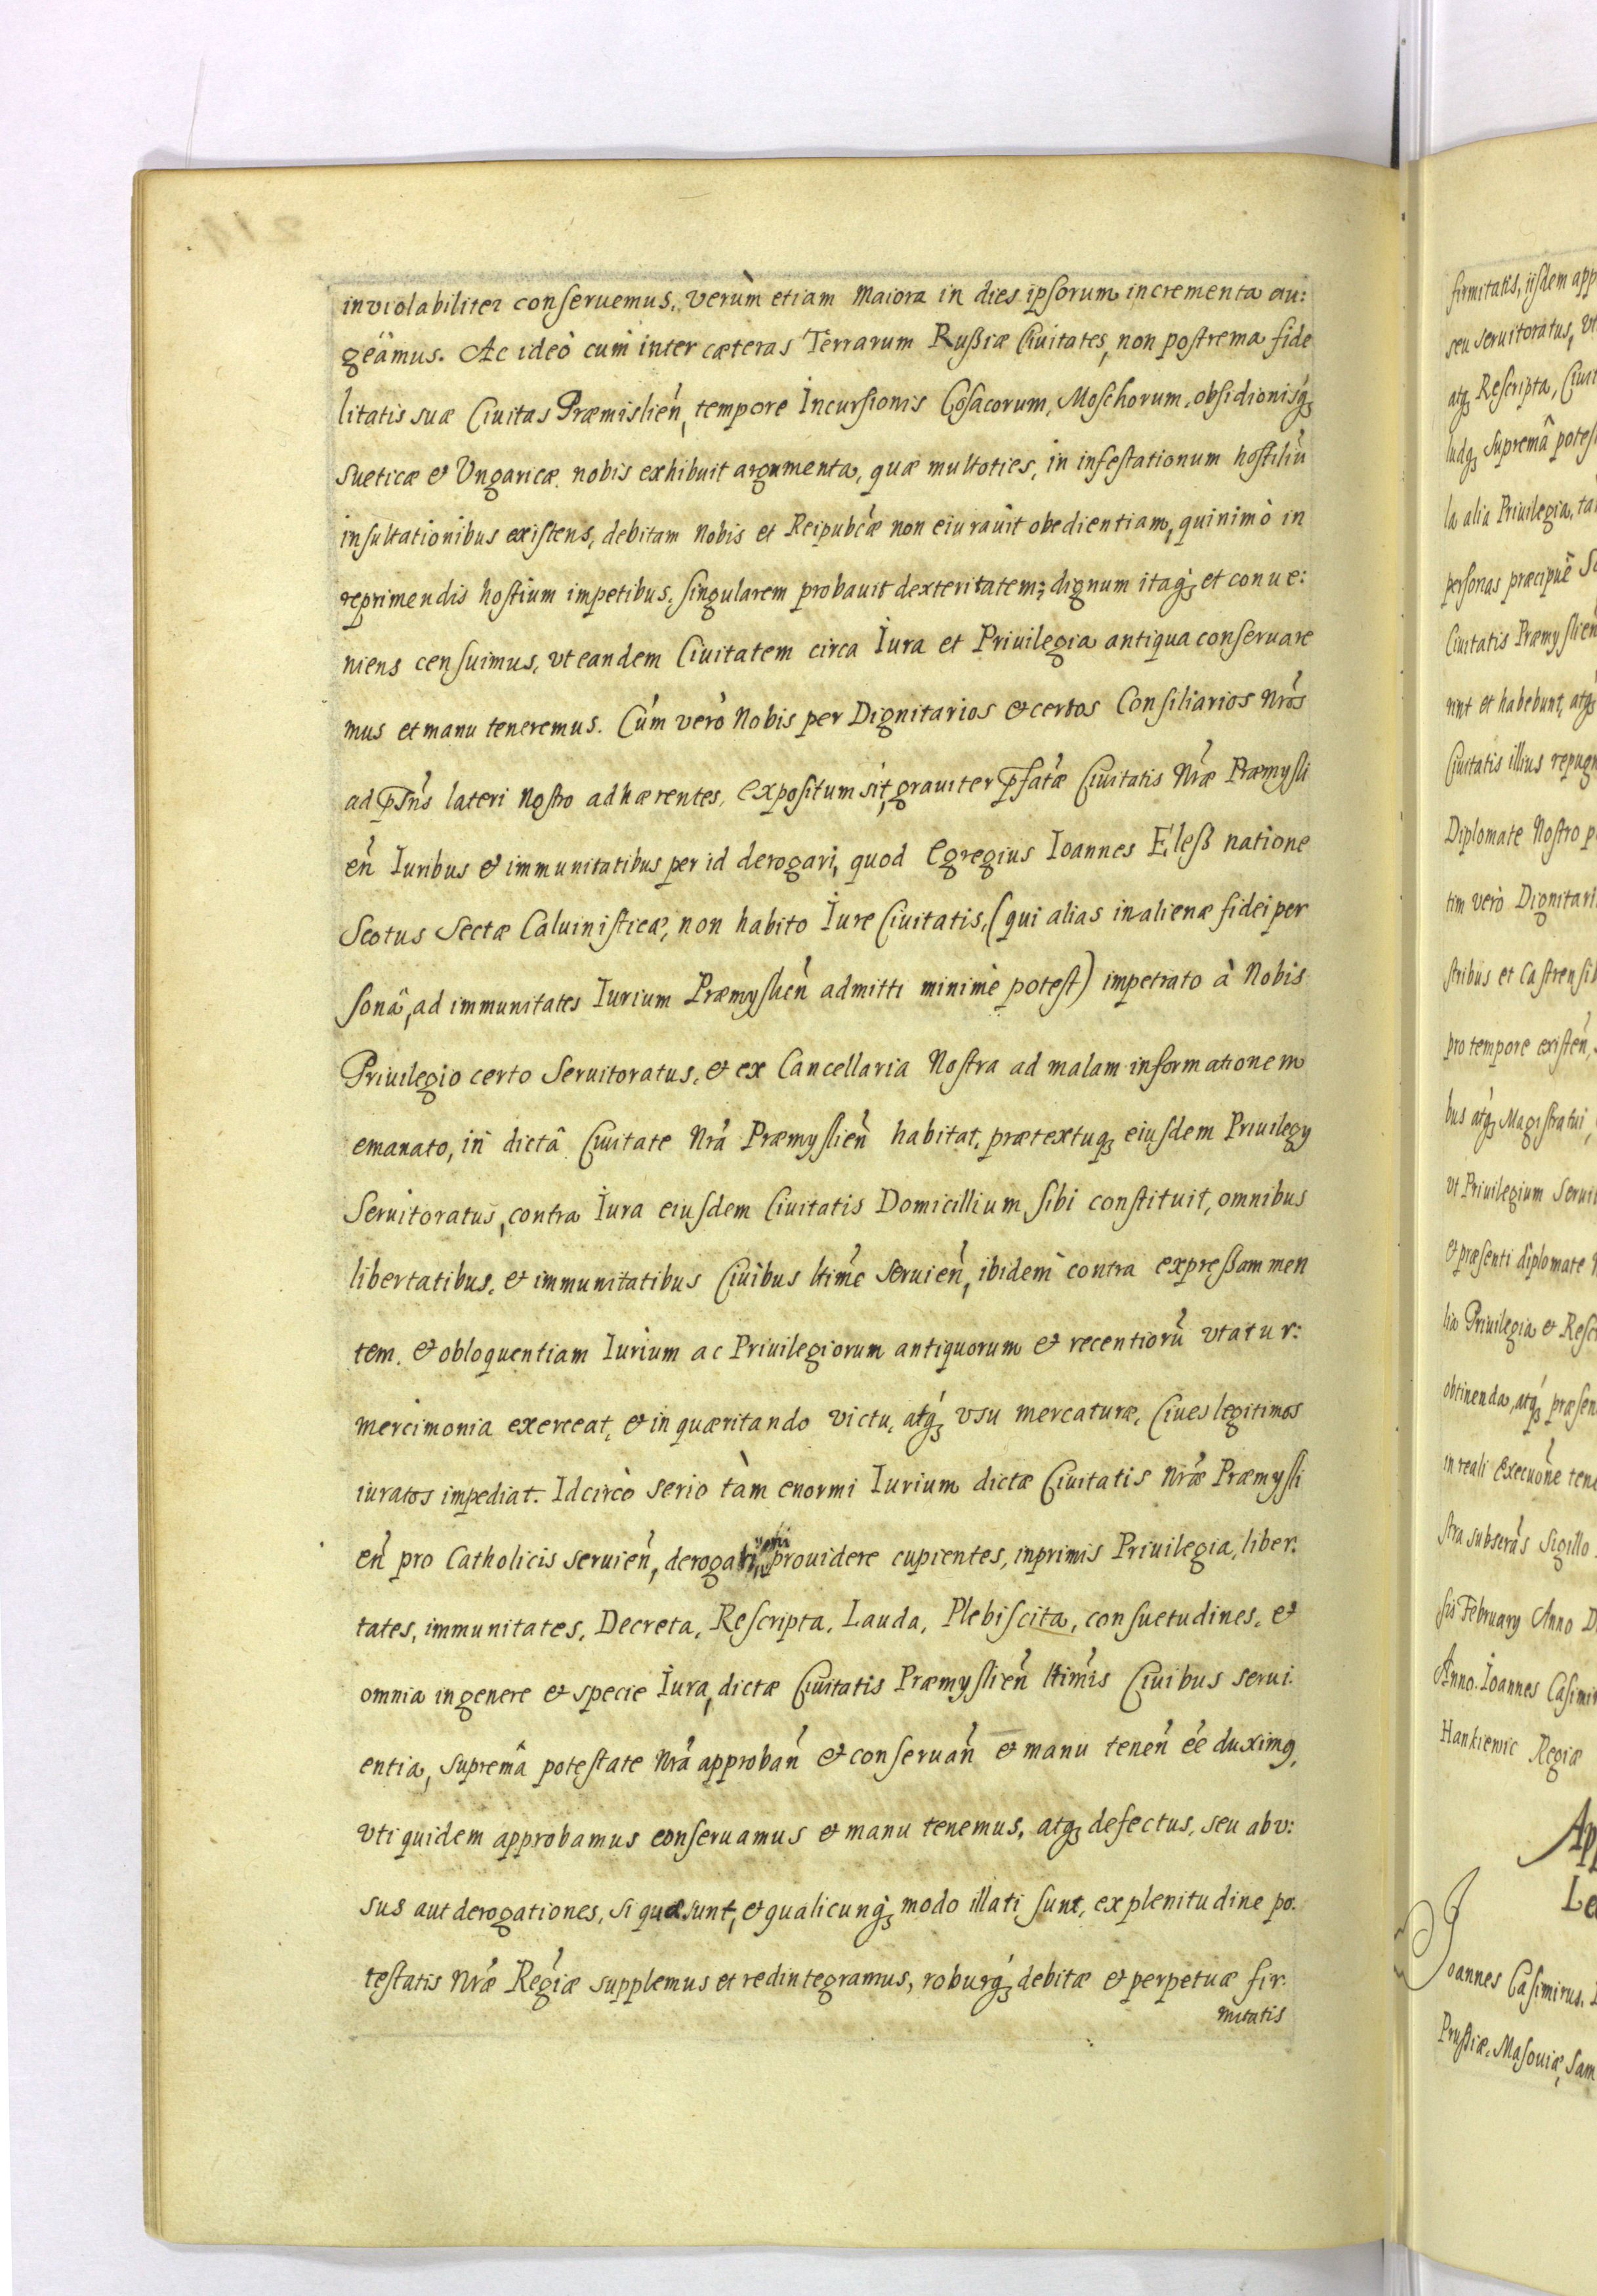 inviolabiliter conseruemus, verùm etiam Maiora in dies ipsorum incrementa au:
geâmus. Ac ideò cum inter cæteras Terrarum Rußiæ Ciuitates, non postrema fide
litatis suæ Ciuitas Præmislien̄, tempore Incursionis Cosacorum, Moschorum, obsidionisq́₃
Sueticæ et Vngaricæ nobis exhibuit argumenta, quæ multoties, in infestationum hostiliū
insultationibus existens, debitam Nobis et Reipubc̄æ non eiurauit obedientiam, quinimò in
reprimendis hostium impetibus, singularem probauit dexteritatem; dignum itaq́₃ et conue:
niens censuimus, vt eandem Ciuitatem circa Iura et Priuilegia antiqua conseruare
mus et manu teneremus. Cúm verò Nobis per Dignitarios et certos Consiliarios Nr̄os
ad p̄sn̄s lateri Nostro adhærentes, expositum sit, grauiter p̄fatæ Ciuitatis Nr̄æ Præmysli
en̄ Iuribus et immunitatibus per id derogari, quod Egregius Ioannes Eleß natione
Scotus Sectæ Caluinisticæ, non habito Iure Ciuitatis, (qui alias in alienæ fidei per
sonâ, ad immunitates Iurium Præmyslien̄ admitti minimè potest) impetrato à Nobis
Priuilegio certo Seruitoratus, et ex Cancellaria Nostra ad malam informationem
emanato, in dictâ Ciuitate Nr̄a Præmyslien̄ habitat, prætextuq₃ eiusdem Priuilegy
Seruitoratus, contra Iura eiusdem Ciuitatis Domicillium sibi constituit, omnibus
libertatibus, et immunitatibus Ciuibus ltimē seruien̄, ibidem contra expreßam men
tem, et obloquentiam Iurium ac Priuilegiorum antiquorum et recentiorū vtatur:
mercimonia exerceat, et in quæritando victu, atq́₃ vsu mercaturæ, Ciues legitimos
iuratos impediat. Idcircò serio tàm enormi Iurium dictæ Ciuitatis Nr̄æ Præmysli
en̄ pro Catholicis seruien̄, derogati oni prouidere cupientes, inprimis Priuilegia, liber:
tates, immunitates, Decreta, Rescripta, Lauda, Plebiscita, consuetudines, et
omnia in genere et specie Iura, dictæ Ciuitatis Præmyslien̄ ltimīs Ciuibus serui:
entia, supremâ potestate Nr̄a approban̄ et conseruan̄ et manu tenen̄ eē duximq,
vti quidem approbamus conseruamus et manu tenemus, atq₃ defectus, seu abv:
sus aut derogationes, si quæ sunt, et qualicunq́₃ modo illati sunt, ex plenitudine po:
testatis Nr̄æ Regiæ supplemus et redintegramus, roburq́₃ debitæ et perpetuæ fir:
mitatis
firmitatis, iisdem app
seu seruitoratus, vt
atq₃ Rescripta, Ciui
ludq₃ Supremâ potes
la alia Priuilegia, ta
personas præcipuè Sc
Ciuitatis Præmyslien̄
runt et habebunt, atq́₃
Ciuitatis illius repugn
Diplomate Nostro p
tim verò Dignitari
stribus et Castrensib
pro tempore existen̄,
bus atq́₃ Magistratui,
vt Priuilegium Serui
et præsenti diplomate
lia Priuilegia et Resc
obtinenda, atq́₃ præsen
in reali execuōne tene
stra subscrās Sigillo
sis February Anno D
Anno. Ioannes Casimir
Hankiewic Regiæ
Ap
Le
Ioannes Casimirus,
Prußiæ, Masouiæ, Sam